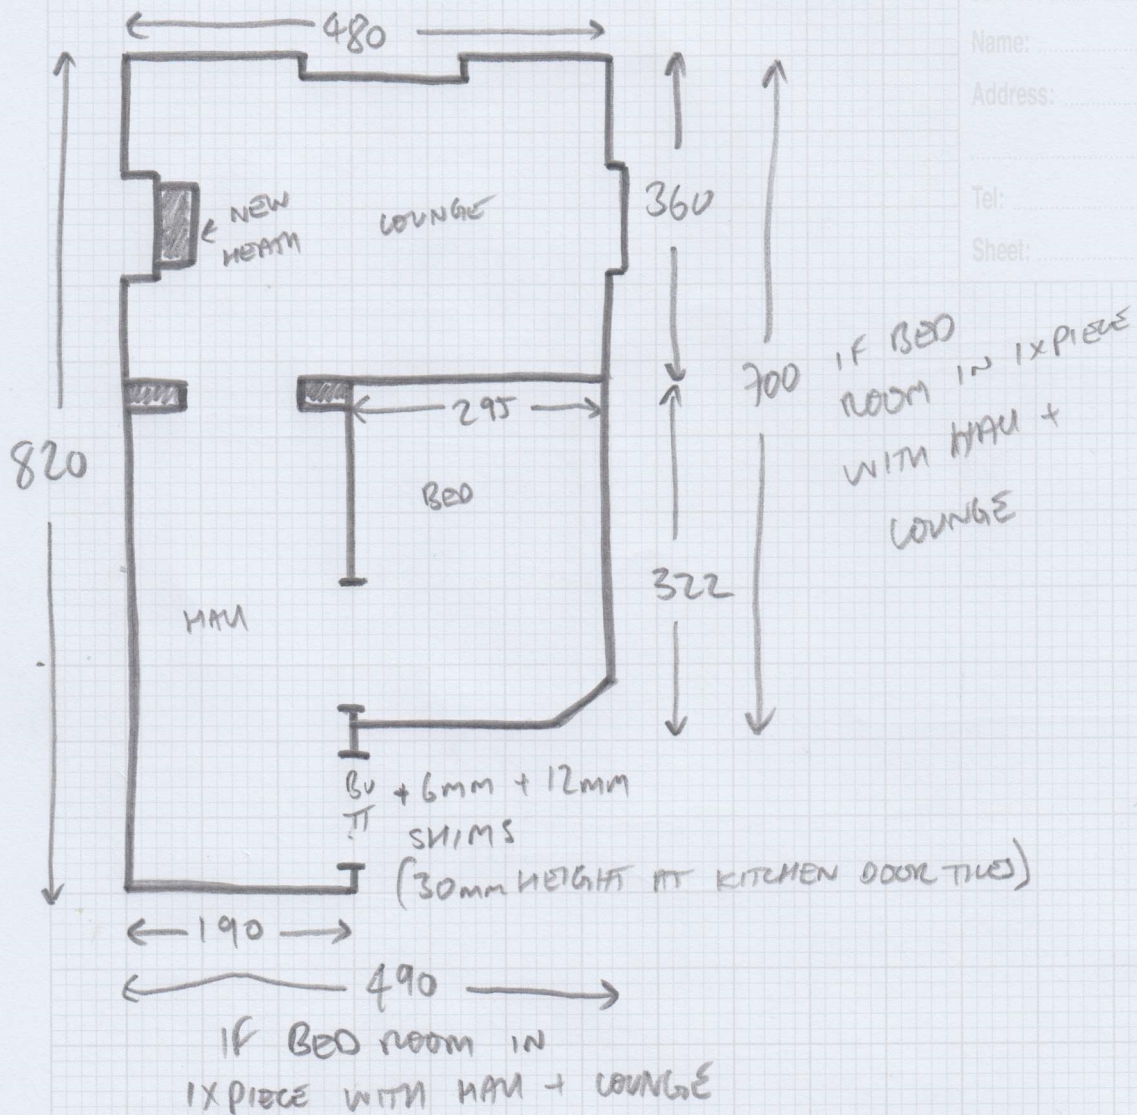 480
Name:
Address:
Tel:
Sheet:
NEW
HEATH
LOUNGE
360
700
IF BED
ROOM IN 1XPIECE
WITH HALL +
LOUNGE
820
295
BED
322
HALL
BU
TT
+ 6mm + 12mm
SHIMS
(30mm HEIGHT AT KITCHEN DOOR TILES)
190
490
IF BED ROOM IN
1XPIECE WITH HALL + LOUNGE